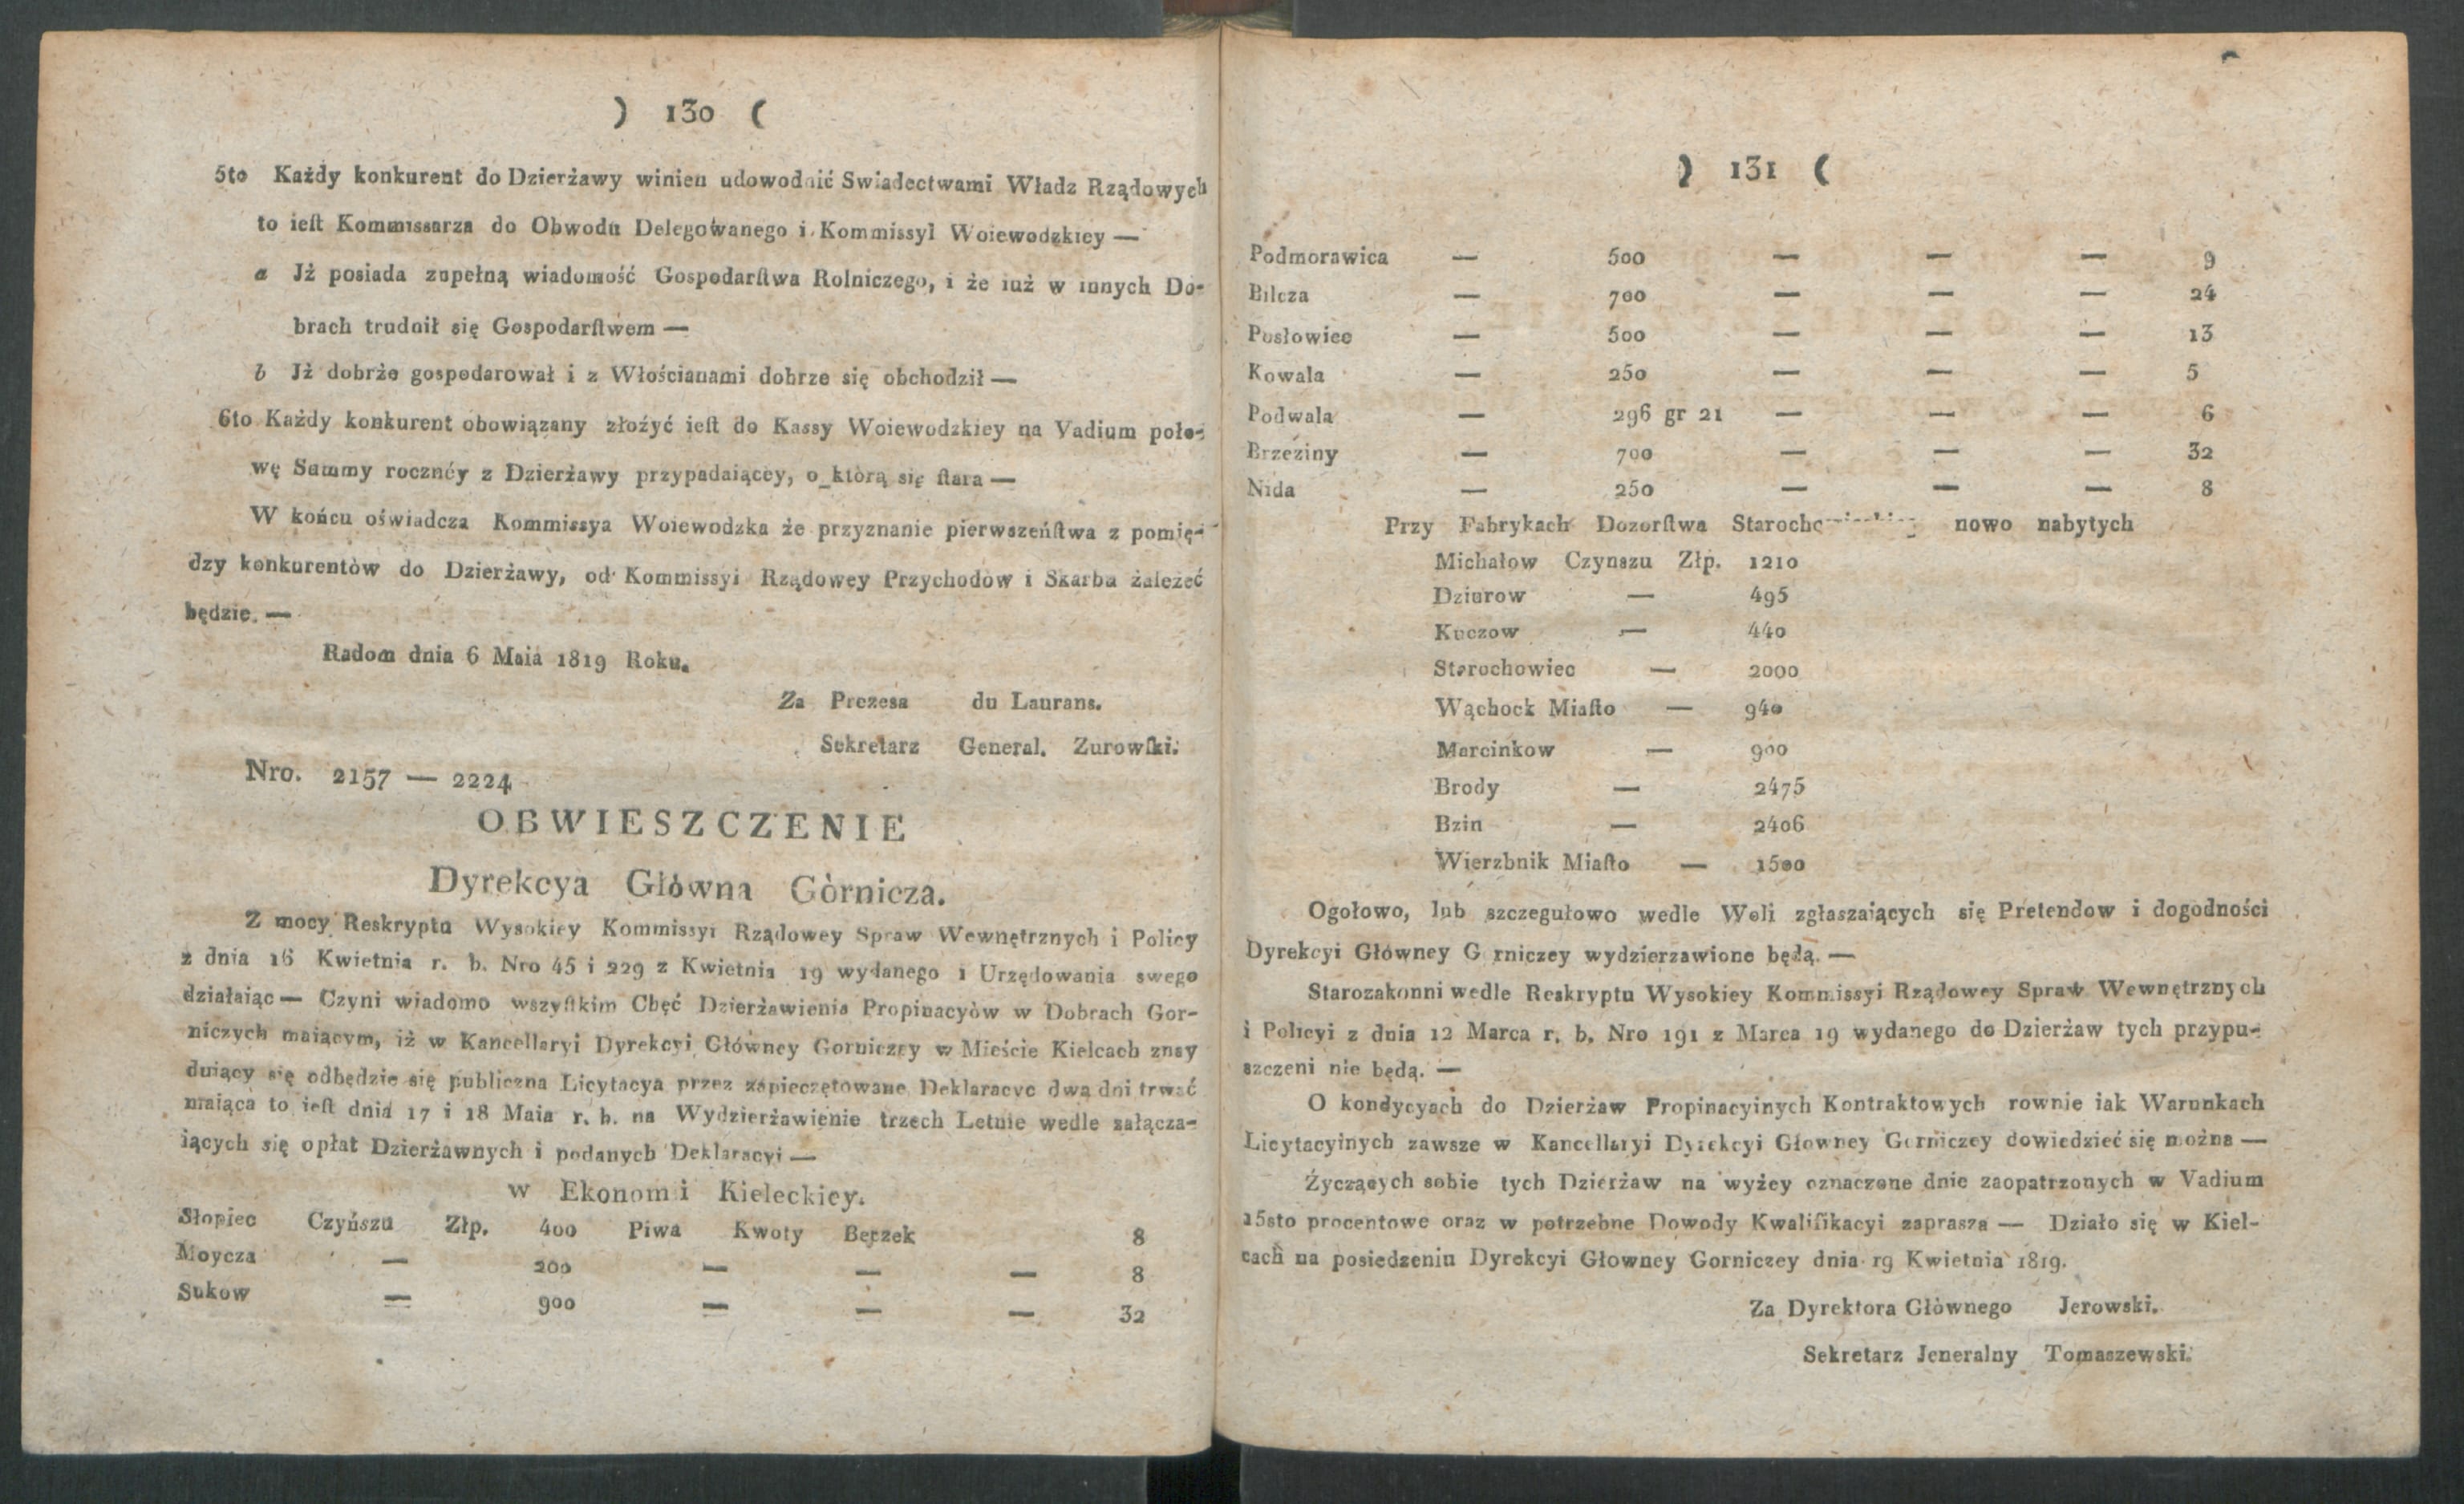 ) 130 (
5to Każdy konkurent do Dzierżawy winien udowodnić Swiadectwami Władz Rządowych
to ieſt Kommissarza do Obwodu Delegowanego i Kommissyi Woiewodzkiey —
a Jż posiada zupełną wiadomość Gospodarſtwa Rolniczego, i że iuż w innych Do-
brach trudnił się Gospodarſtwem —
b Jż dobrże gospodarował i z Włościanami dobrze się obchodził —
6to Każdy konkurent obowiązany złożyć ieſt do Kassy Woiewodzkiey na Vadium poło-
wę Summy rocznéy z Dzierżawy przypadaiącey, o którą się ſtara —
W końcu oświadcza Kommissya Woiewodzka że przyznanie pierwszeńſtwa z pomię-
dzy konkurentòw do Dzierżawy, od Kommissyi Rządowey Przychodòw i Skarbu żależeć
będzie. —
Radom dnia 6 Maia 1819 Roku.
Za Prezesa du Laurans.
Sekretarz General. Zurowſki.
Nro. 2157 — 2224
OBWIESZCZENIE
Dyrekcya Glòwna Gòrnicza.
Z mocy Reskryptu Wysokiey Kommissyi Rządowey Spraw Wewnętrznych i Policy
z dnia 16 Kwietnia r. b. Nro 45 i 229 z Kwietnia 19 wydanego i Urzędowania swego
działaiąc — Czyni wiadomo wszyſtkim Chęć Dzierżawienia Propinacyòw w Dobrach Gor-
niczych maiącym, iż w Kancellaryi Dyrekcyi Głòwney Gorniczey w Mieście Kielcach znay
duiący się odbędzie się publiczna Licytacya przez zapieczętowane Deklaracye dwa dni trwać
maiąca to ieſt dnia 17 i 18 Maia r. b. na Wydzierżawienie trzech Letnie wedle załącza-
iących się opłat Dzierżawnych i podanych Deklaracyi —
w Ekonomi i Kieleckiey.
Słopiec Czyńszu Złp. 400 Piwa Kwoty Beczek 8
Moycza — 200 — — — 8
Sukow — 900 — — — 32
) 131 (
Podmorawica — 500 — — — 9
Bilcza — 700 — — — 24
Posłowiec — 500 — — — 13
Kowala — 250 — — — 5
Podwala — 296 gr 21 — — — 6
Brzeziny — 700 — — — 32
Nida — 250 — — — 8
Przy Fabrykach Dozorſtwa nowo nabytych
Michałow Czynszu Złp. 1210
Dziurow — 495
Kuczow — 440
Starochowiec — 2000
Wąchock Miaſto — 940
Marcinkow — 900
Brody — 2475
Bzin — 2406
Wierzbnik Miaſto — 1500
Ogołowo, lub szczegułowo wedle Woli zgłaszaiących się Pretendow i dogodności
Dyrekcyi Głòwney G rniczey wydzierzawione będą. —
Starozakonni wedle Reskryptu Wysokiey Kommissyi Rządowey Spraw Wewnętrznych
i Policyi z dnia 12 Marca r. b. Nro 191 z Marca 19 wydanego do Dzierżaw tych przypu-
szczeni nie będą. —
O kondycyach do Dzierżaw Propinacyinych Kontraktowych rownie iak Warunkach
Licytacyinych zawsze w Kancellaryi Dyrekcyi Głowney Gorniczey dowiedzieć się można —
Życzących sobie tych Dzierżaw na wyżey oznaczone dnie zaopatrzonych w Vadium
15sto procentowe oraz w potrzebne Dowody Kwalifikacyi zaprasza — Działo się w Kiel-
cach na posiedzeniu Dyrekcyi Głowney Gorniczey dnia 19 Kwietnia 1819.
Za Dyrektora Glòwnego Jerowski.
Sekretarz Jeneralny Tomaszewski.